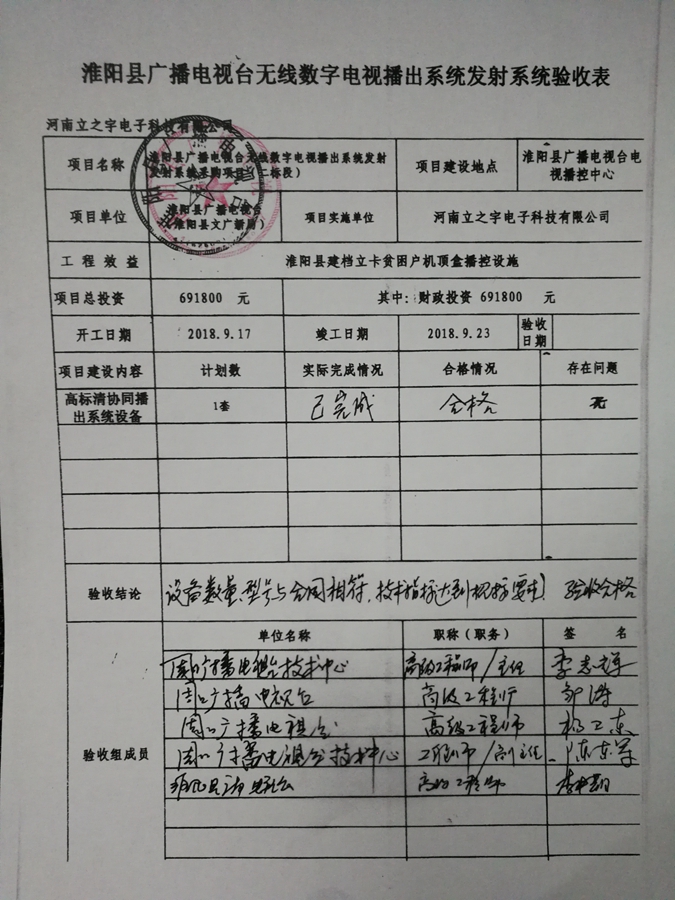 淮阳县广播电视台无线数字电视播出系统发射系统验收表
河南立之宇电子科技有限公司
项目名称
淮阳县广播电视台无线数字电视播出系统发射
发射系统采购项目(二标段)
项目建设地点
淮阳县广播电视台电
视播控中心
项目单位
淮阳县广播电视台
(淮阳县文广新局)
项目实施单位
河南立之宇电子科技有限公司
工程效益
淮阳县建档立卡贫困户机顶盒播控设施
项目总投资
691800 元
其中:财政投资 691800 元
开工日期
2018.9.17
竣工日期
2018.9.23
验收
日期
项目建设内容 计划数 实际完成情况 合格情况 存在问题
高标清协同播
出系统设备
1套
已完成
合格
无
验收结论
设备数量、型号与合同相符,技术指标达到招标要求! 验收合格
验收组成员
单位名称 职称(职务) 签 名
周口广播电视台技术中心 高级工程师/主任
周口广播电视台 高级工程师
周口广播电视台 高级工程师 杨卫东
周口广播电视台技术中心 工程师/副主任 陈东军
电视台 高级工程师